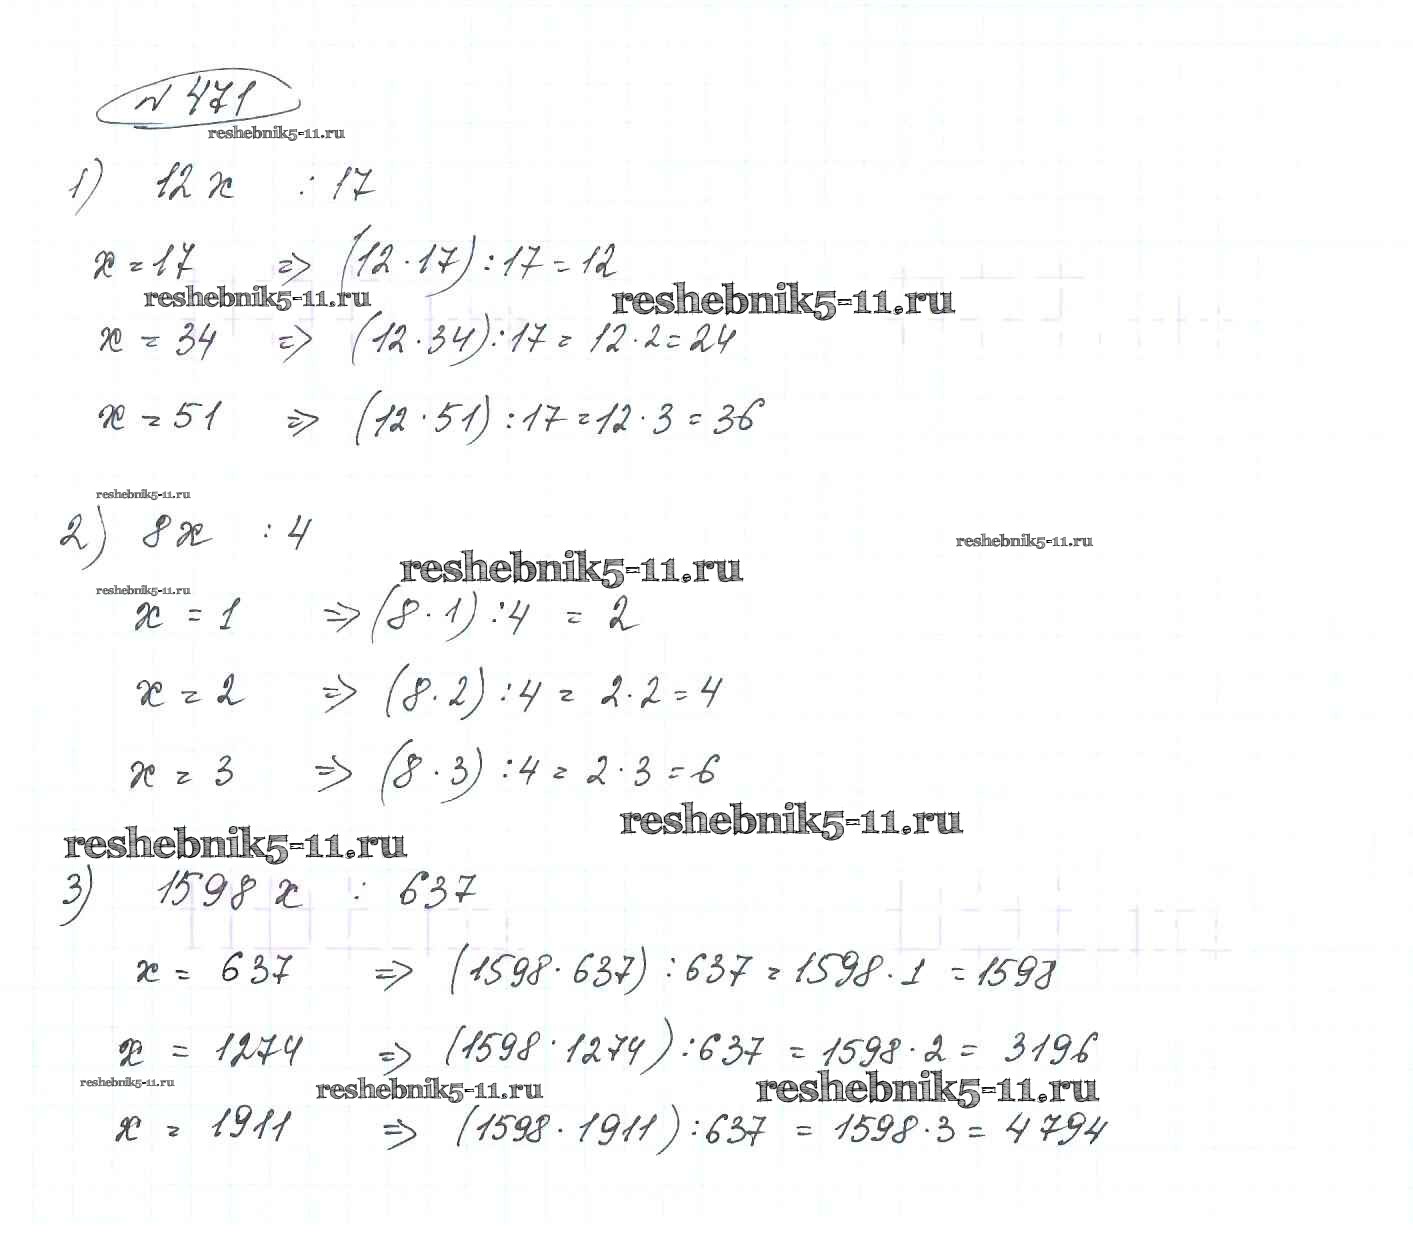 № 471
reshebnik5-11.ru
1) 12x : 17
x = 17 => (12·17):17 = 12
reshebnik5-11.ru reshebnik5-11.ru
x = 34 => (12·34):17 = 12·2 = 24
x = 51 => (12·51):17 = 12·3 = 36
reshebnik5-11.ru
2) 8x : 4
reshebnik5-11.ru
reshebnik5-11.ru
reshebnik5-11.ru
x = 1 => (8·1):4 = 2
x = 2 => (8·2):4 = 2·2 = 4
x = 3 => (8·3):4 = 2·3 = 6
reshebnik5-11.ru
reshebnik5-11.ru
3) 1598x : 637
x = 637 => (1598·637):637 = 1598·1 = 1598
x = 1274 => (1598·1274):637 = 1598·2 = 3196
reshebnik5-11.ru reshebnik5-11.ru reshebnik5-11.ru
x = 1911 => (1598·1911):637 = 1598·3 = 4794